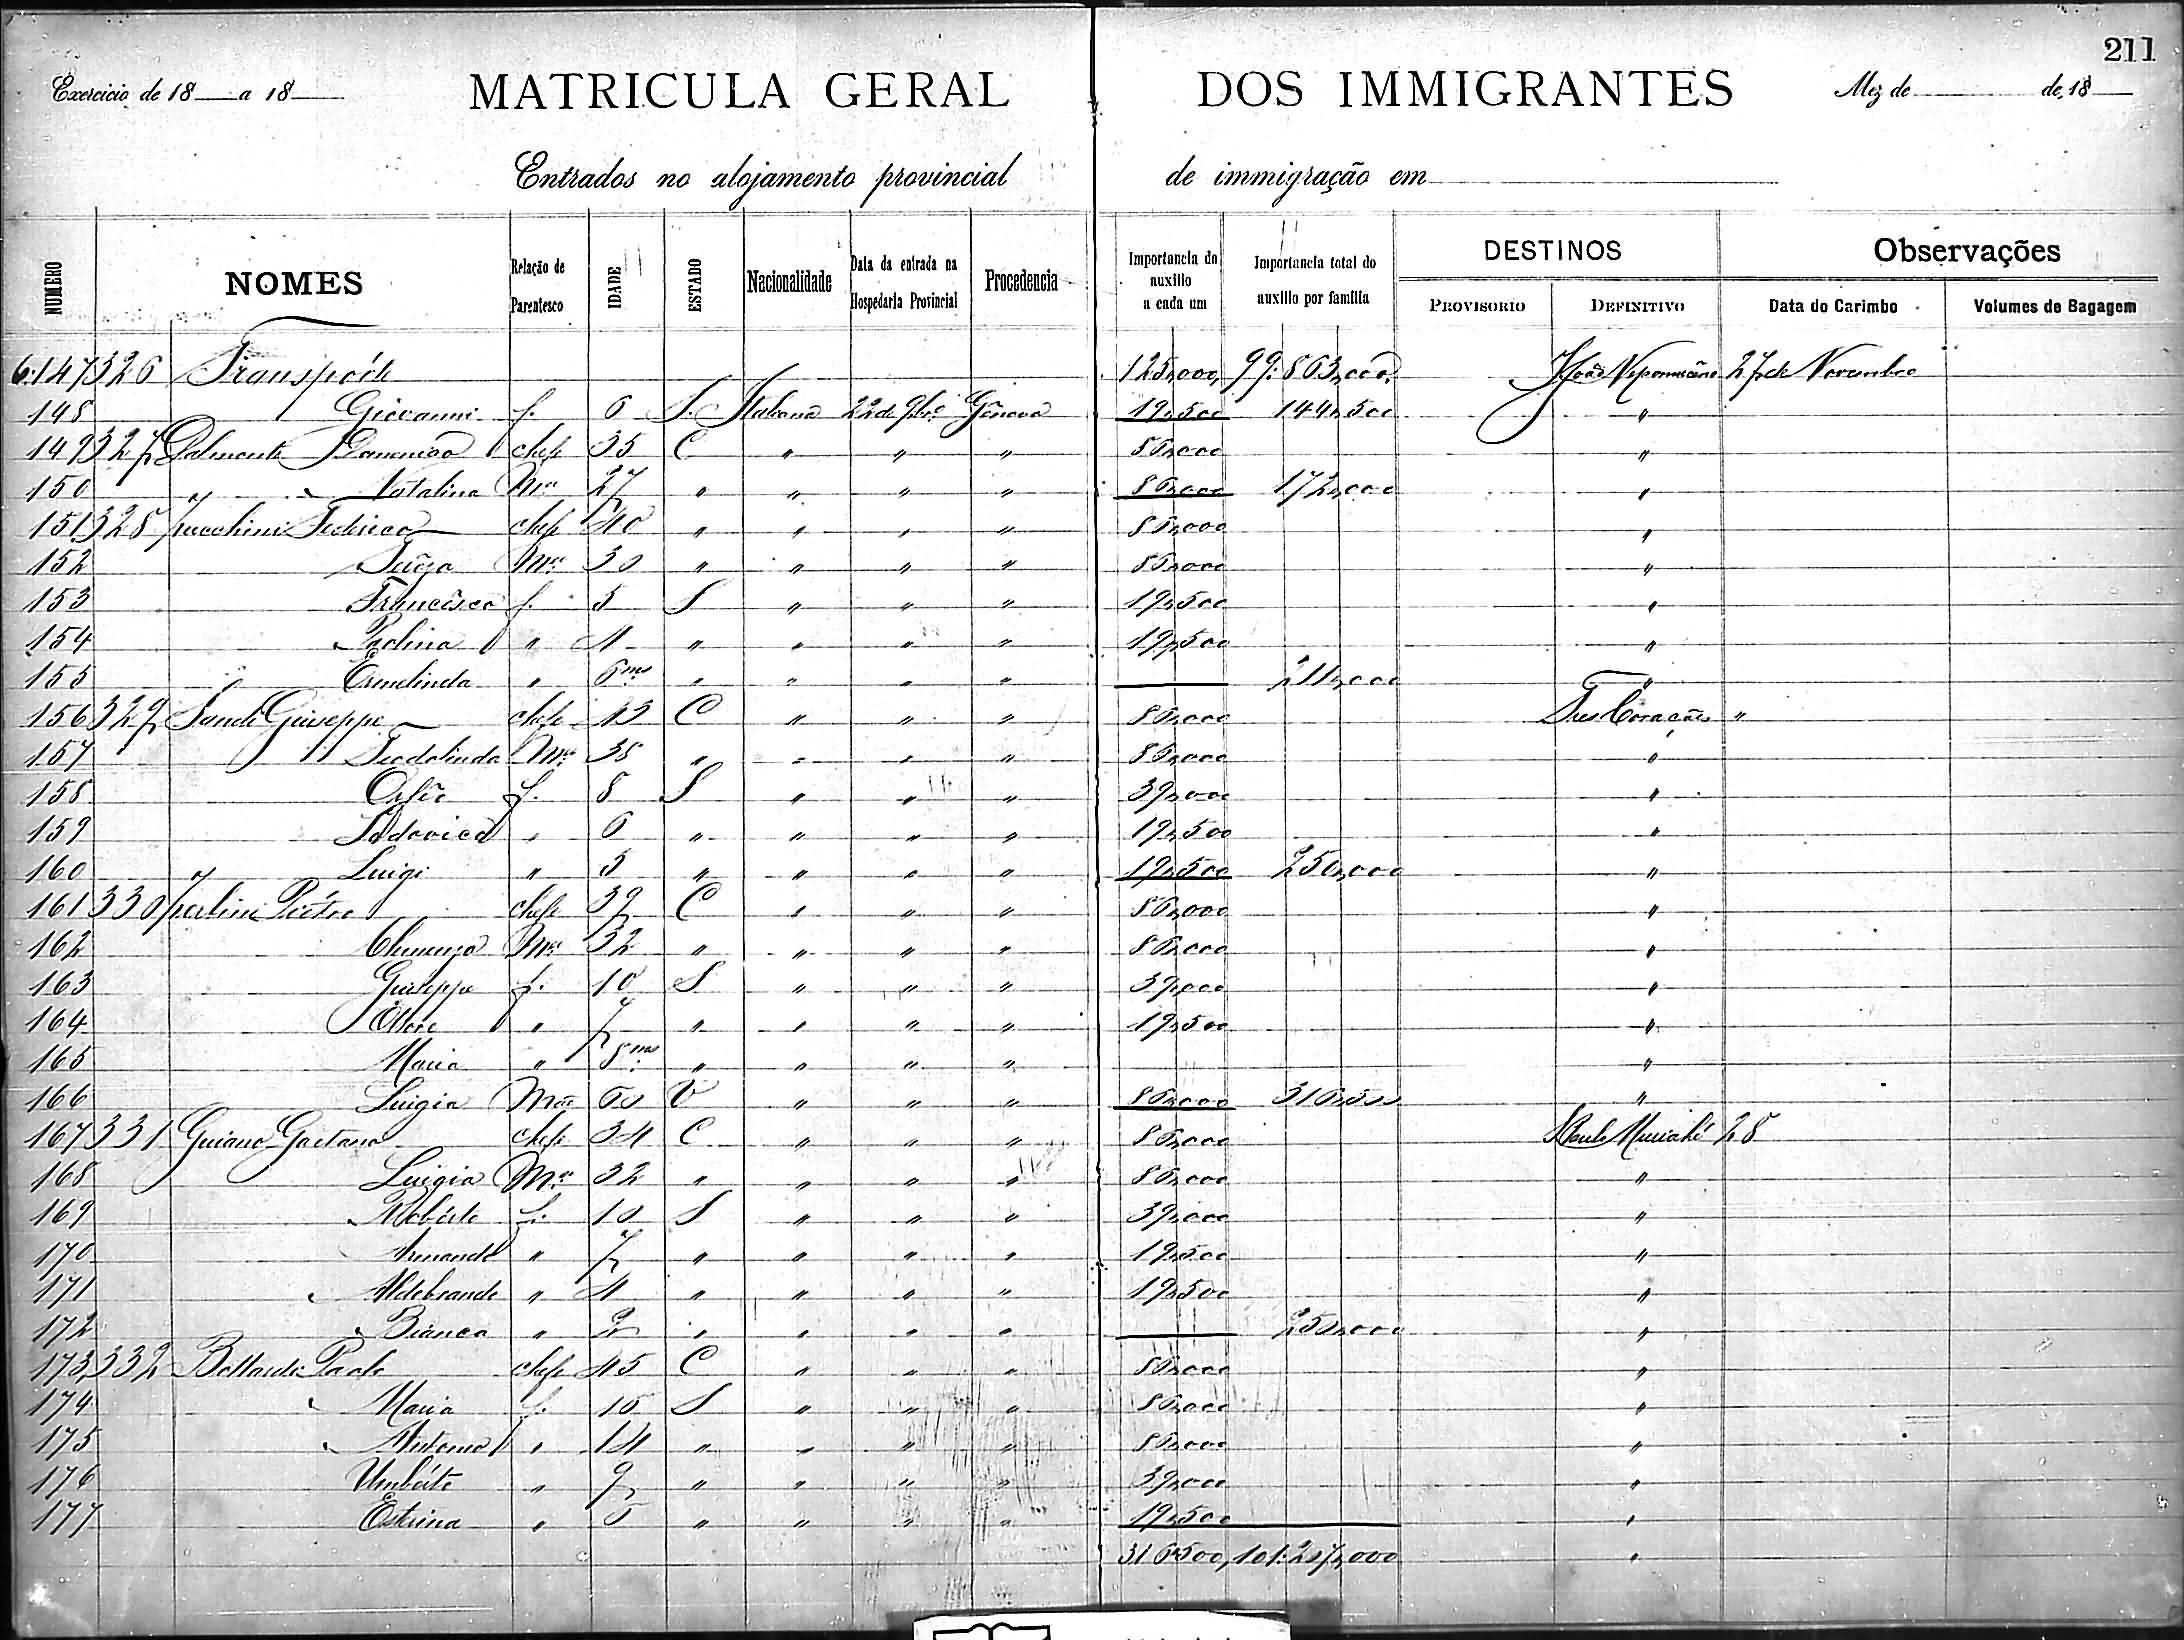 211
Exercicio de 18 a 18 MATRICULA GERAL DOS IMMIGRANTES Mez de de 18
Entrados no alojamento provincial de immigração em
NUMERO NOMES Relação de Parentesco IDADE ESTADO Nacionalidade Data da entrada na Hospedaria Provincial Procedencia Importancia do auxilio a cada um Importancia total do auxilio por familia DESTINOS PROVISORIO DEFINITIVO Observações Data do Carimbo Volumes de Bagagem
6.147 326 Transporte 125,000 99:863,000 João Nepomuceno 27 de Novembro
148 Giovanni f. 6 S. Italiana 22 de 9bro Genova 19,500 144,500 "
149 327 Domenico chefe 35 C " " " 86,000 "
150 " Natalina Mer 27 " " " " 86,000 172,000 "
151 328 Zucchini Federico chefe 40 " " " " 86,000 "
152 Mer 30 " " " " 86,000 "
153 Francisco f. 5 S " " " 19,500 "
154 Paolina " 4 " " " " 19,500 "
155 " Ermelinda " 6 ms " " " " 211,000 "
156 329 Giuseppe chefe 43 C " " " 86,000 Tres Corações "
157 Teodolinda Mer 38 " " " " 86,000 "
158 f. 8 S " " " 39,000 "
159 Lodovico " 6 " " " " 19,500 "
160 " Luigi " 5 " " " " 19,500 250,000 "
161 330 Pietro chefe 39 C " " " 86,000 "
162 Mer 32 " " " " 86,000 "
163 Giuseppe f. 10 S " " " 39,000 "
164 Ettore " 7 " " " " 19,500 "
165 Maria " 8 ms " " " " "
166 Luigia Mãe 60 V " " " 86,000 316,500 "
167 331 Gaetano chefe 34 C " " " 86,000 Paulo Muriahé 28
168 Luigia Mer 32 " " " " 86,000 "
169 Roberto f. 10 S " " " 39,000 "
170 Armando " 7 " " " " 19,500 "
171 Aldebrando " 4 " " " " 19,500 "
172 Bianca " 2 " " " " 250,000 "
173 332 Paolo chefe 45 C " " " 86,000 "
174 Maria f. 16 S " " " 86,000 "
175 Antonio " 14 " " " " 86,000 "
176 Umberto " 9 " " " " 39,000 "
177 " 5 " " " " 19,500 "
316,500 101:207,000 "